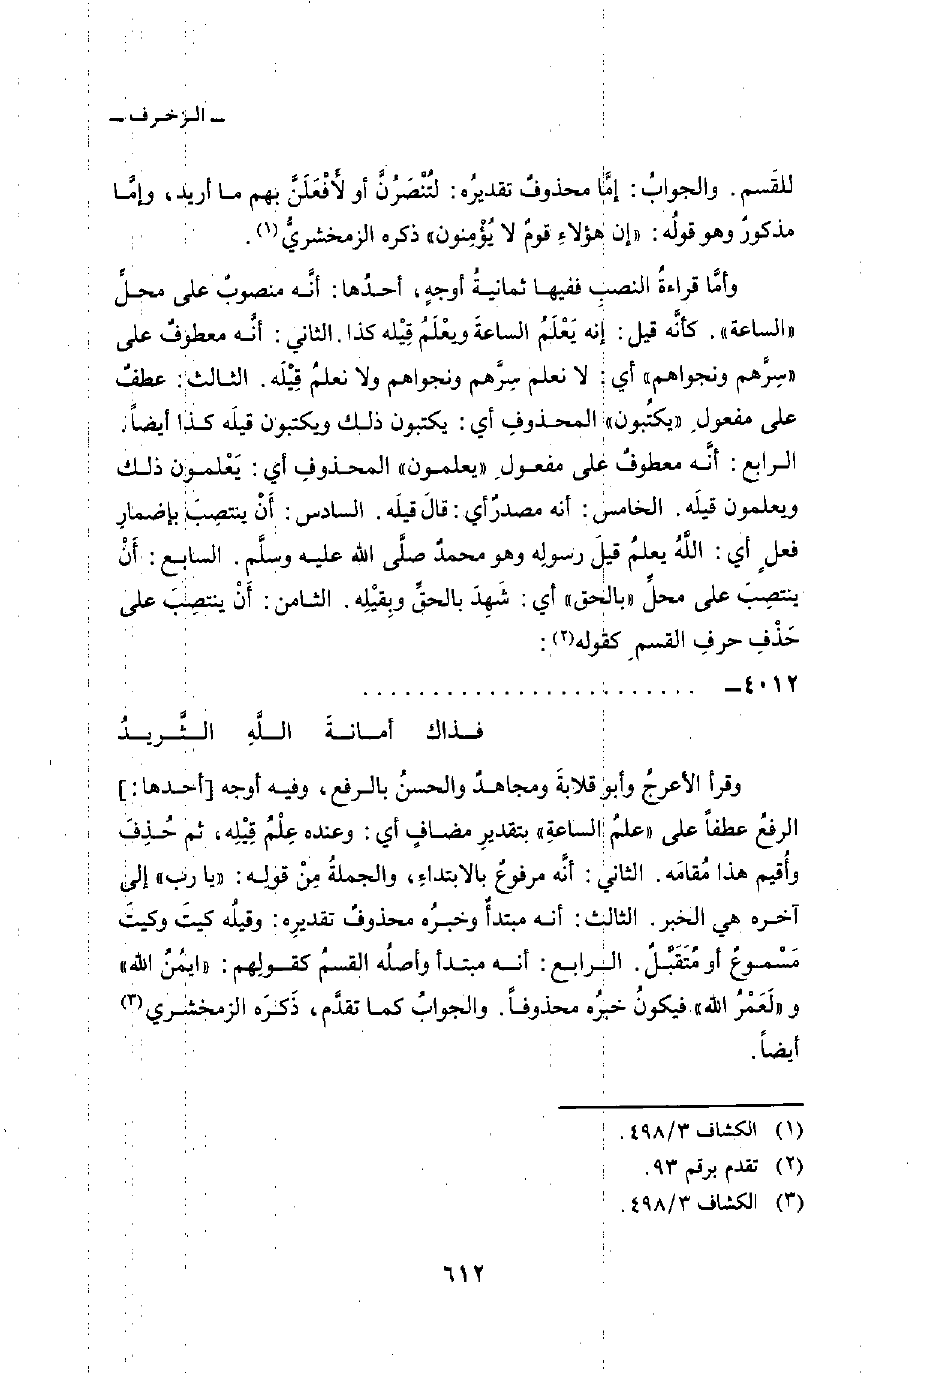 ـ الزخرف ـ
للقَسم. والجوابُ: إمَّا محذوفٌ تقديرُه: لتُنْصَرُنَّ أو لأَفْعَلَنَّ بهم ما أريد، وإمَّا
مذكورٌ وهو قولُه: «إن هؤلاءِ قومٌ لا يُؤْمِنون» ذكره الزمخشريُّ(١).
وأمَّا قراءةُ النصبِ ففيها ثمانيةُ أوجهٍ، أحدُها: أنَّه منصوبٌ على محلِّ
«الساعة». كأنَّه قيل: إنه يَعْلَمُ الساعةَ ويعْلَمُ قِيْله كذا. الثاني: أنَّه معطوفٌ على
«سِرَّهم ونجواهم» أي: لا نعلم سِرَّهم ونجواهم ولا نعلمُ قِيْلَه. الثالث: عطفٌ
على مفعولِ «يكتُبون» المحذوفِ أي: يكتبون ذلك ويكتبون قيلَه كذا أيضاً.
الرابع: أنَّه معطوفٌ على مفعولِ «يعلمون» المحذوفِ أي: يَعْلمون ذلك
ويعلمون قيلَه. الخامس: أنه مصدرٌ أي: قالَ قيلَه. السادس: أَنْ ينتصِبَ بإضمارِ
فعلٍ أي: اللَّهُ يعلمُ قيلَ رسولِه وهو محمدٌ صلَّى الله عليه وسلَّم. السابع: أَنْ
ينتصِبَ على محلِّ «بالحق» أي: شَهِدَ بالحقِّ وبقيْلِه. الثامن: أَنْ ينتصِبَ على
حَذْفِ حرفِ القسمِ كقوله(٢):
٤٠١٢ـ . . . . . . . . . . . . . . . . . . . . . . . .
فـذاك أمـانـةَ الـلَّهِ الـثَّـريـدُ
وقرأ الأعرجُ وأبو قلابةَ ومجاهدٌ والحسنُ بالرفع، وفيه أوجه [أحدها:]
الرفعُ عطفاً على «علمُ الساعةِ» بتقديرِ مضافٍ أي: وعنده عِلْمُ قِيْلِه، ثم حُذِفَ
وأُقيم هذا مُقامَه. الثاني: أنَّه مرفوعٌ بالابتداءِ، والجملةُ مِنْ قولِه: «يا رب» إلى
آخره هي الخبر. الثالث: أنه مبتدأٌ وخبرُه محذوفٌ تقديره: وقيلُه كيتَ وكيتَ
مَسْموعٌ أو مُتَقَبَّلٌ. الرابع: أنه مبتدأ وأصلُه القسمُ كقولِهم: «ايمُنُ الله»
و «لَعَمْرُ الله» فيكونُ خبرُه محذوفاً. والجوابُ كما تقدَّم، ذَكرَه الزمخشري(٣)
أيضاً.
(١) الكشاف ٤٩٨/٣.
(٢) تقدم برقم ٩٣.
(٣) الكشاف ٤٩٨/٣.
٦١٢